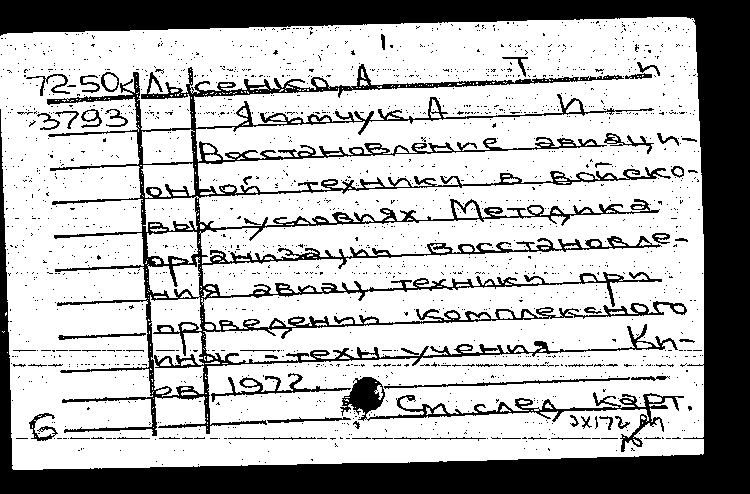 1.
72-50к Лысенко, А Т п
3793 Якимчук, А п
Восстановление авиаци-
онной техники в войско-
вых условиях. Методика
организации восстановле-
ния авиац. техники при
проведении комплексного
инж.-техн. учения. Ки-
ев, 1972.
См. след. карт.
6